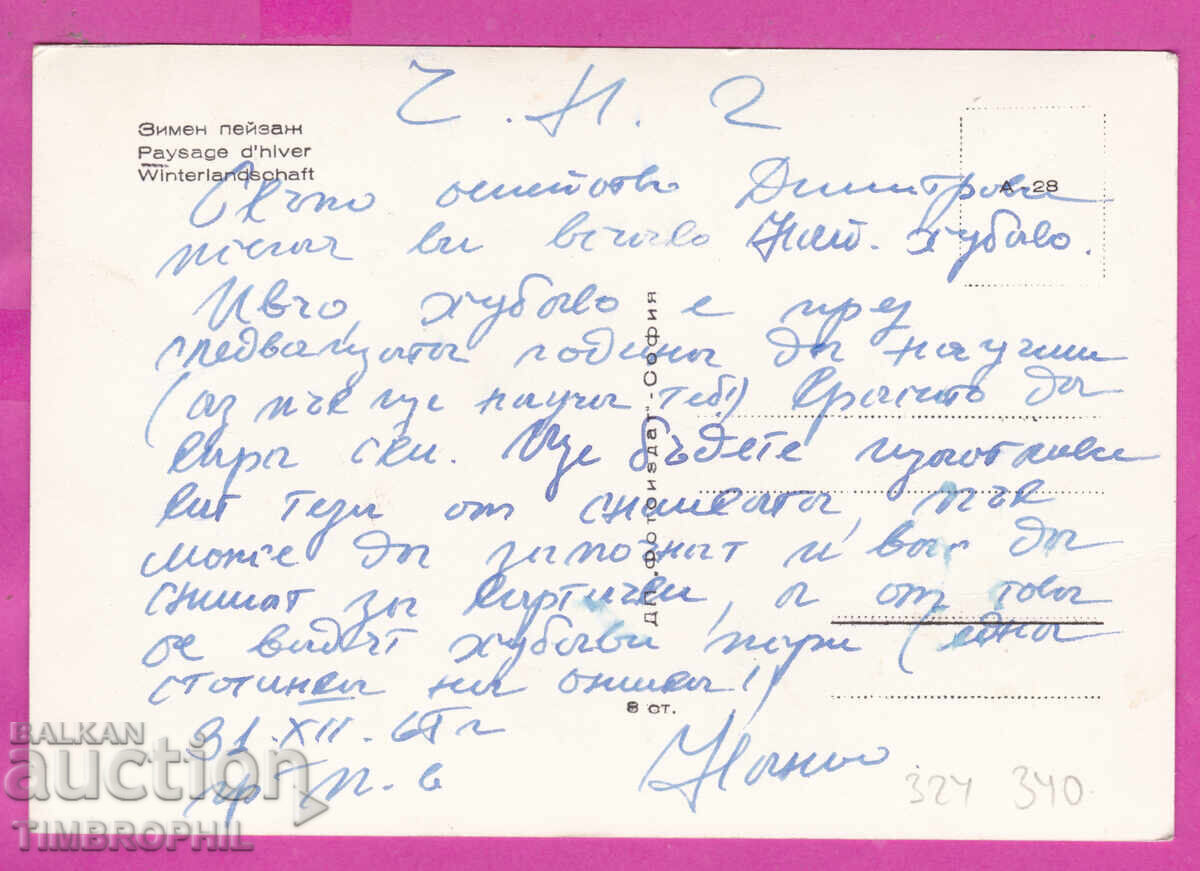 Ч. Н. Г
Зимен пейзаж
Paysage d'hiver
Winterlandschaft
А - 28
Скъпо семейство Димитрови
желая ви всичко най-хубаво.
Ивчо, хубаво е през
следващата година да научиш
(аз пък ще науча теб!) Красито да
кара ски. Ще бъдете
кат тези от снимката, пък
може да започнат и вас да
снимат за картички, а от това
се вадят хубави пари (една
стотинка на снимка!)
31. XII. г
гр.
ДП „Фотоиздат" - София
8 ст.
324 340
BALKAN
auction
TIMBROPHIL